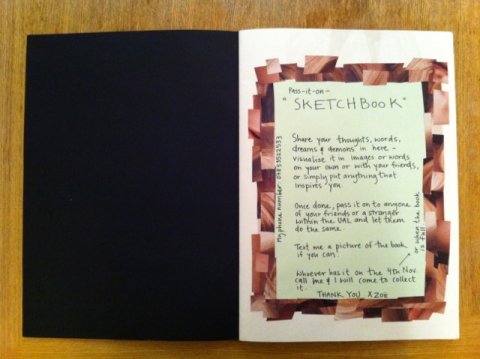 Pass-it-on-
"SKETCHBOOK"
Share your thoughts, words,
dreams & demons in here -
visualise it in images or words
on your own or with your friends,
or simply put anything that
inspires you
Once done, pass it on to anyone
of your friends or a stranger
within the UAL and let them
do the same.
Text me a picture of the book
if you can.
Whoever has it on the 4th Nov.
call me & I will come to collect
it.
THANK YOU X ZOË
my phone number
or when the book
is full.